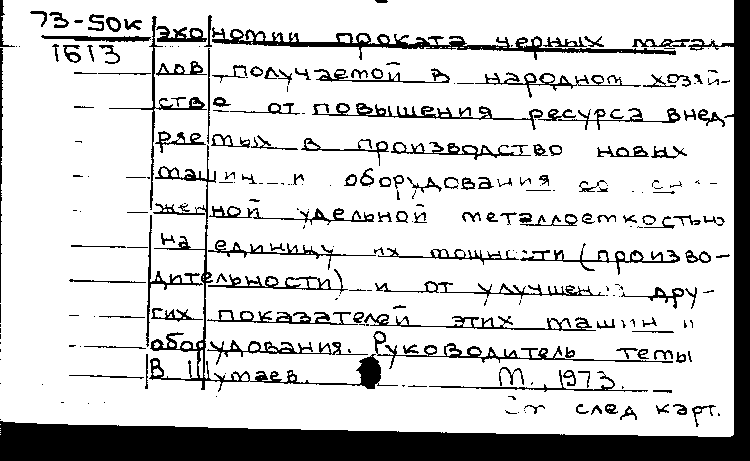 73-50к экономии проката черных метал-
1613
лов, получаемой в народном хозяй-
стве от повышения ресурса внед-
ряемых в производство новых
машин и оборудования со сни-
женной удельной металлоемкостью
на единицу их мощности (произво-
дительности) и от улучшения дру-
гих показателей этих машин и
оборудования. Руководитель темы
В. Шутаев. М., 1973.
См след карт.